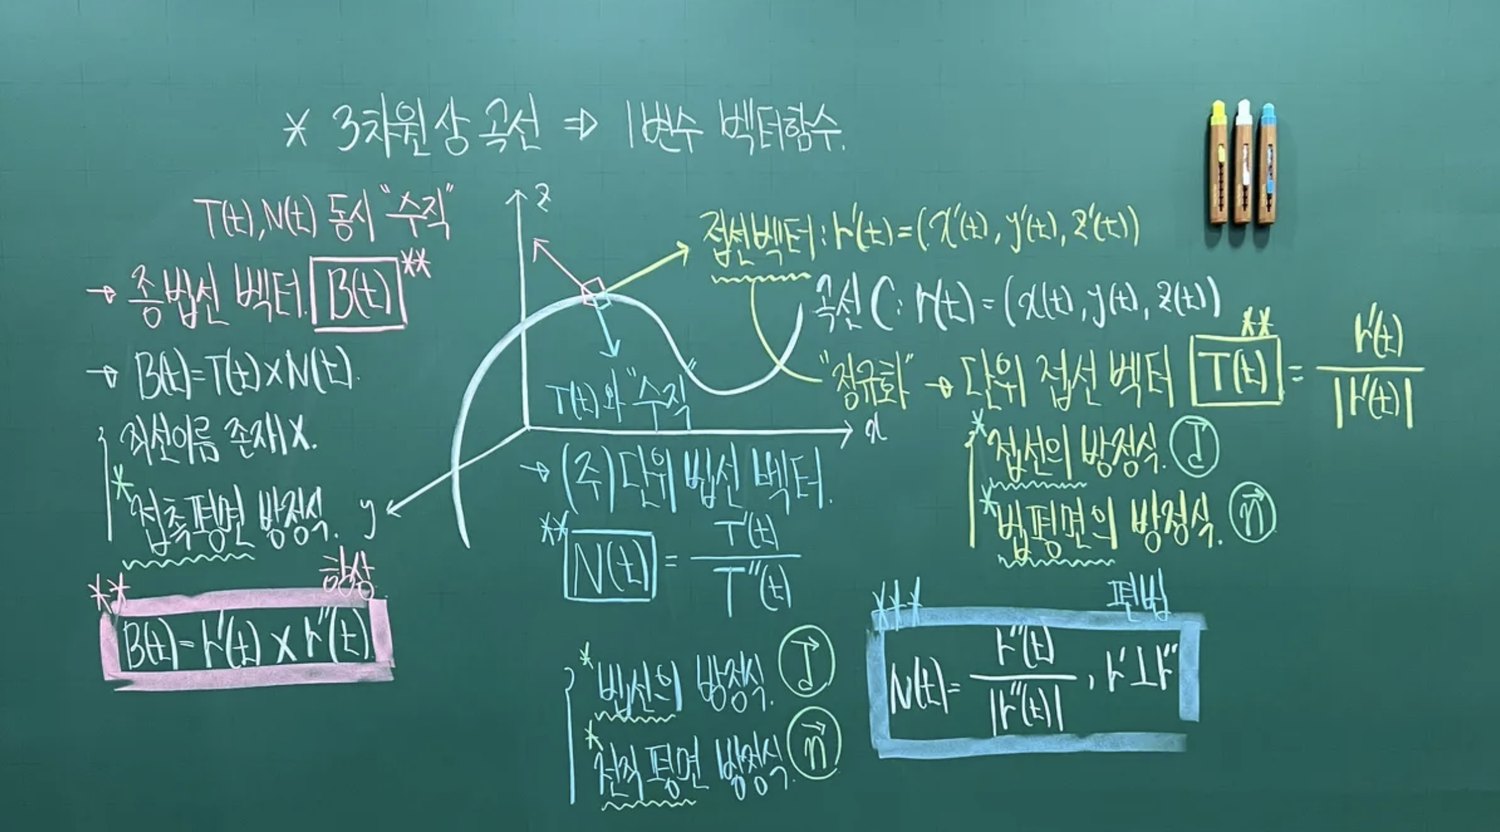 * 3차원 상 곡선 ⇒ 1변수 벡터함수.
T(t), N(t) 동시 "수직"
→ 종법선 벡터. B(t) **
→ B(t)=T(t)×N(t).
직선이름 존재X.
* 접촉평면 방정식.
** 항상
B(t)=r'(t)×r''(t)
z
x
y
접선벡터: r'(t)=(x'(t), y'(t), z'(t))
곡선 C: r(t)=(x(t), y(t), z(t))
"정규화" → 단위 접선 벡터 ** T(t) = r'(t) / |r'(t)|
* 접선의 방정식. d⃗
* 법평면의 방정식. n⃗
T(t)와 "수직"
→ (주)단위 법선 벡터.
** N(t) = T'(t) / T''(t)
* 법선의 방정식. d⃗
* 전직평면 방정식. n⃗
*** 편법
N(t)= r''(t) / |r''(t)| , r'⊥r''